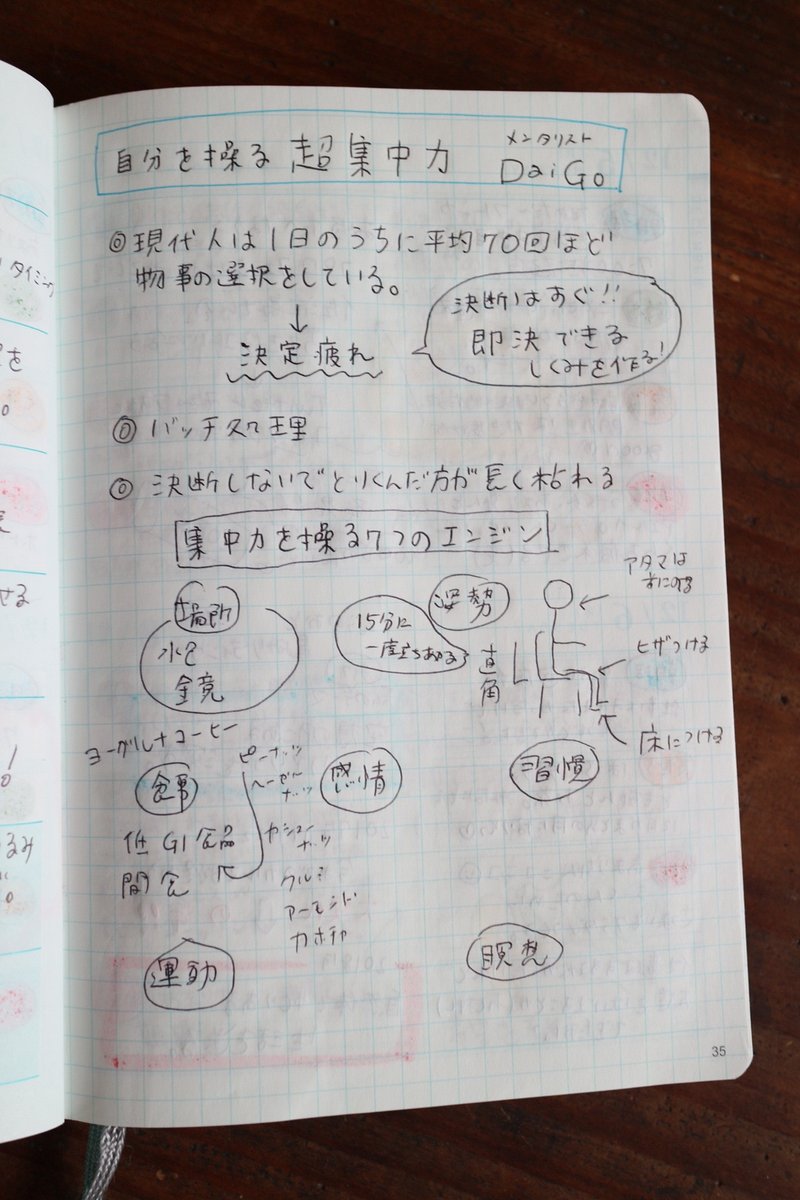 自分を操る 超集中力 メンタリスト DaiGo
◎現代人は1日のうちに平均70回ほど
物事の選択をしている。
↓
決定疲れ
決断はすぐ!!
即決できる
しくみを作る!
◎ バッチ処理
◎ 決断しないでとりくんだ方が長く粘れる
集中力を操る7つのエンジン
場所
水色
鏡
姿勢
15分に
一度立ちあがる
直角
アタマは
ヒザつける
床につける
ヨーグルト+コーヒー
食事
低GI食品
間食
ピーナッツ
ヘーゼル
ナッツ
カシュー
ナッツ
クルミ
アーモンド
カボチャ
感情
習慣
運動
瞑想
35
タイミング
を
せる
るみ